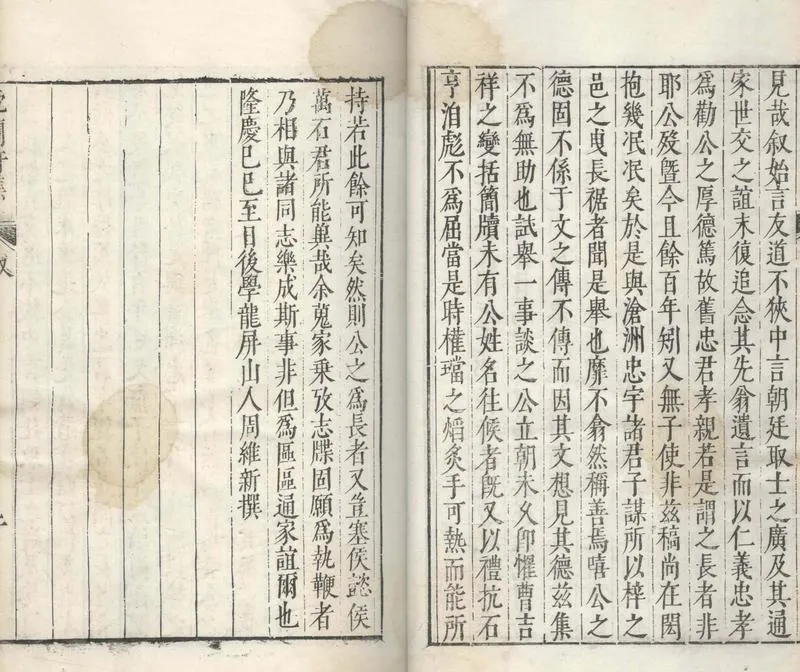 見哉叙始言友道不狹中言朝廷取士之廣及其通
家世交之誼末復追念其先翁遺言而以仁義忠孝
為勸公之厚德篤故舊忠君孝親若是謂之長者非
耶公歿曁今且餘百年矧又無子使非茲稿尚在閎
抱幾冺冺矣於是與滄洲忠宇諸君子謀所以梓之
邑之曳長裾者聞是舉也靡不翕然稱善焉嘻公之
德固不係于文之傳不傳而因其文想見其德茲集
不為無助也試舉一事談之公立朝未久仰懼曹吉
祥之變括簡牘未有公姓名往候者旣又以禮抗石
亨洎彪不為屈當是時權璫之熖炙手可熱而能所
持若此餘可知矣然則公之為長者又豈塞侯懿侯
萬石君所能龔哉余蒐家乗攷志牒固願為執鞭者
乃相與諸同志樂成斯事非但為區區通家誼爾也
隆慶巳巳至日後學龍屏山人周維新撰
叙